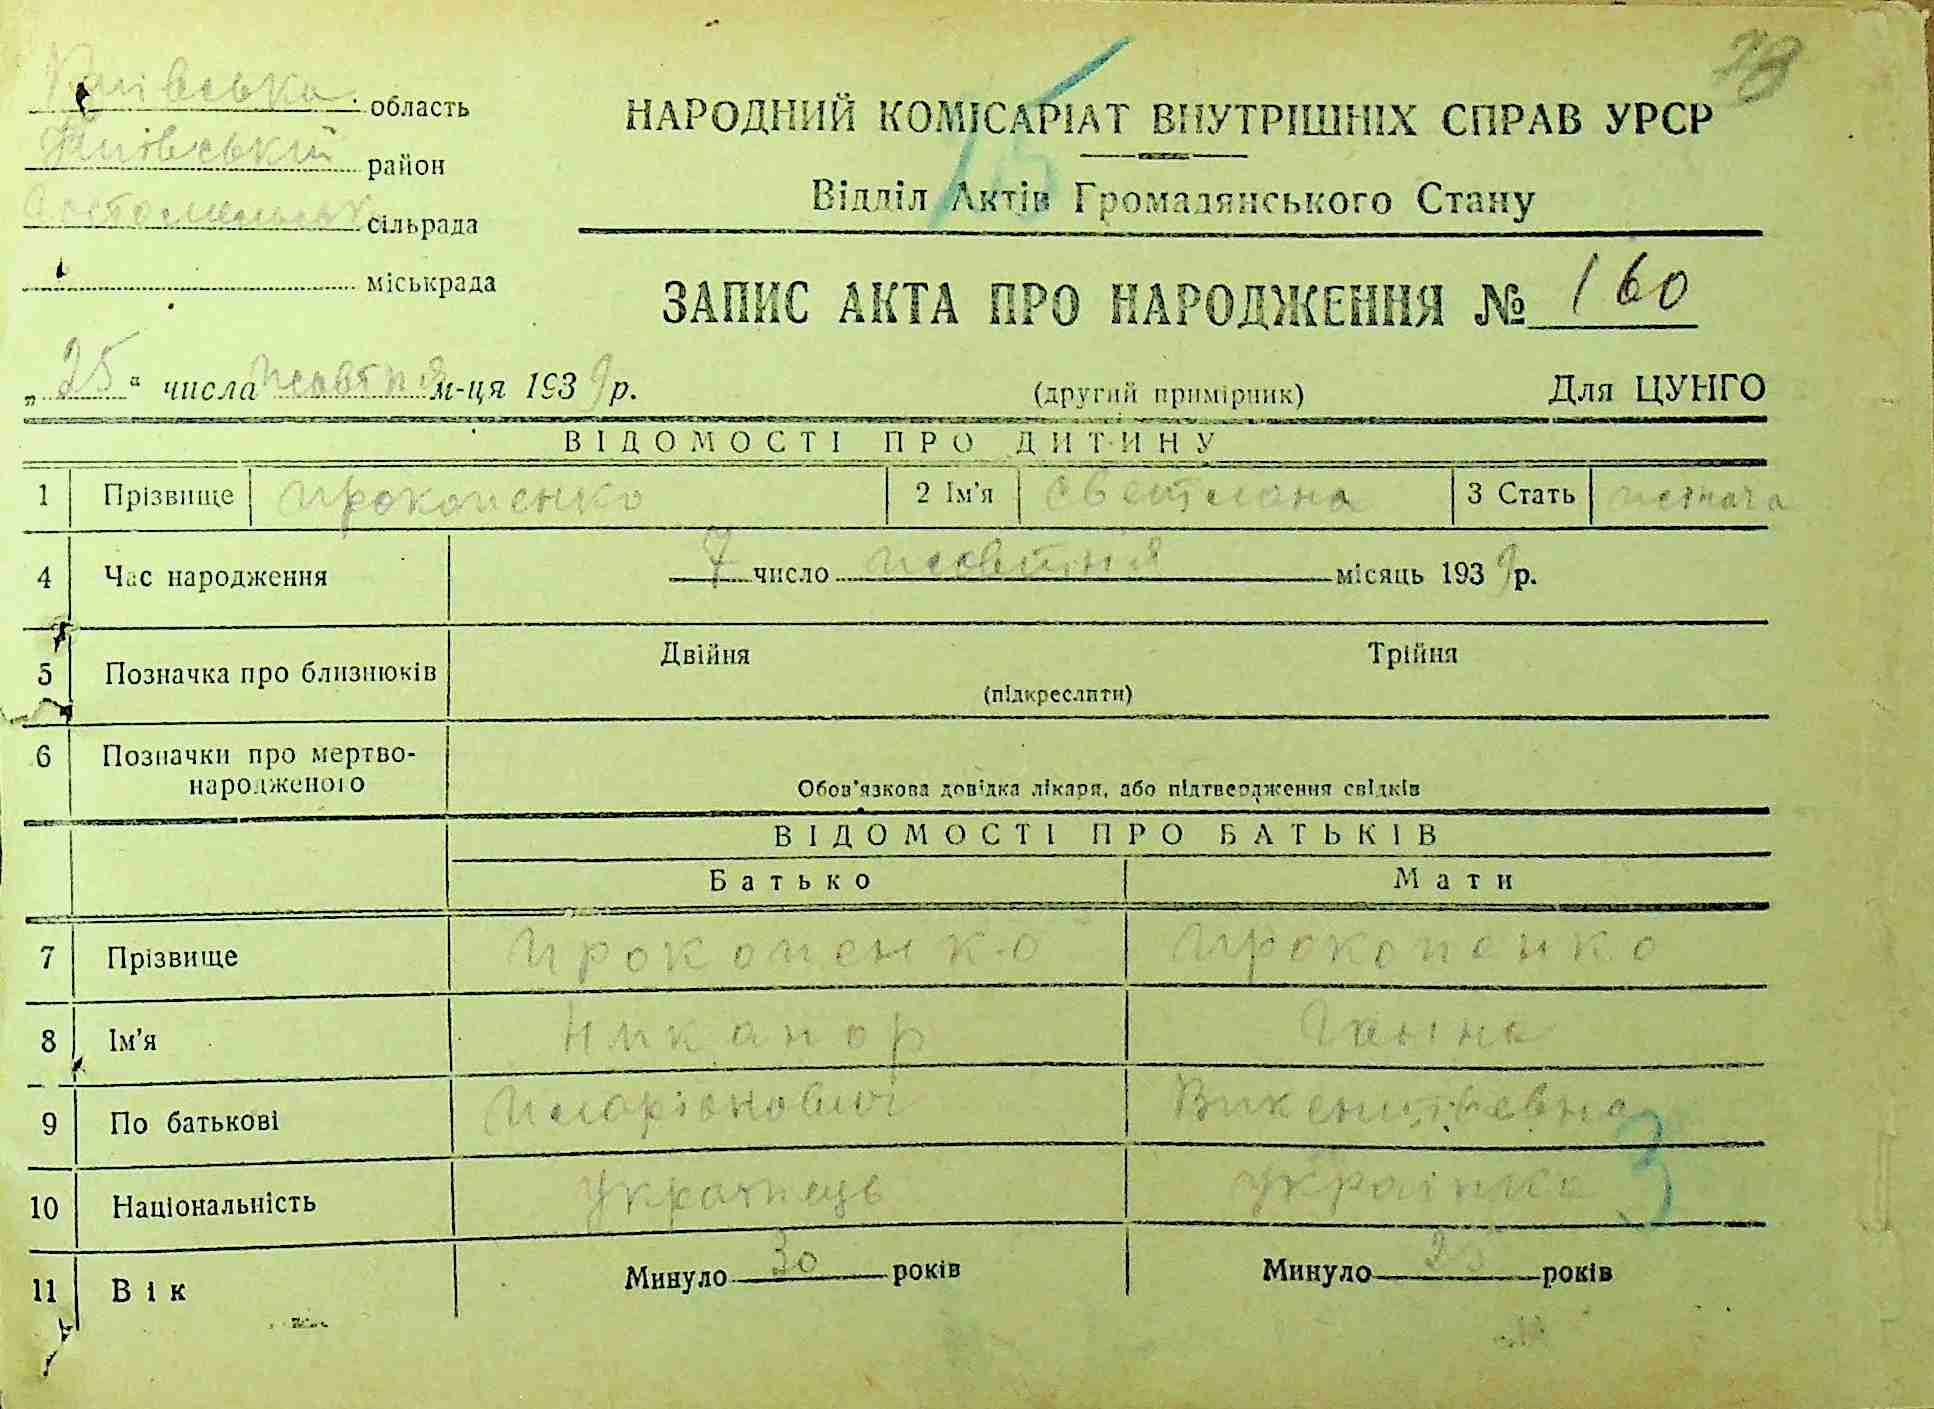 78
Київська область
Київський район
Гостомельська сільрада
міськрада
НАРОДНИЙ КОМІСАРІАТ ВНУТРІШНІХ СПРАВ УРСР
75
Відділ Актів Громадянського Стану
ЗАПИС АКТА ПРО НАРОДЖЕННЯ № 160
„25“ числа жовтня м-ця 1939 р.
(другий примірник)
Для ЦУНГО
ВІДОМОСТІ ПРО ДИТИНУ
1 Прізвище Прокопенко 2 Ім'я Светлана 3 Стать жіноча
4 Час народження 7 число жовтня місяць 1939 р.
5 Позначка про близнюків Двійня Трійня
(підкреслити)
6 Позначки про мертво-
народженого
Обов'язкова довідка лікаря, або підтвердження свідків
ВІДОМОСТІ ПРО БАТЬКІВ
Батько Мати
7 Прізвище Прокопенко Прокопенко
8 Ім'я Никанор Ганна
9 По батькові Иларіонович Викентівевна
3
10 Національність Українець Українка
11 Вік Минуло 30 років Минуло 25 років